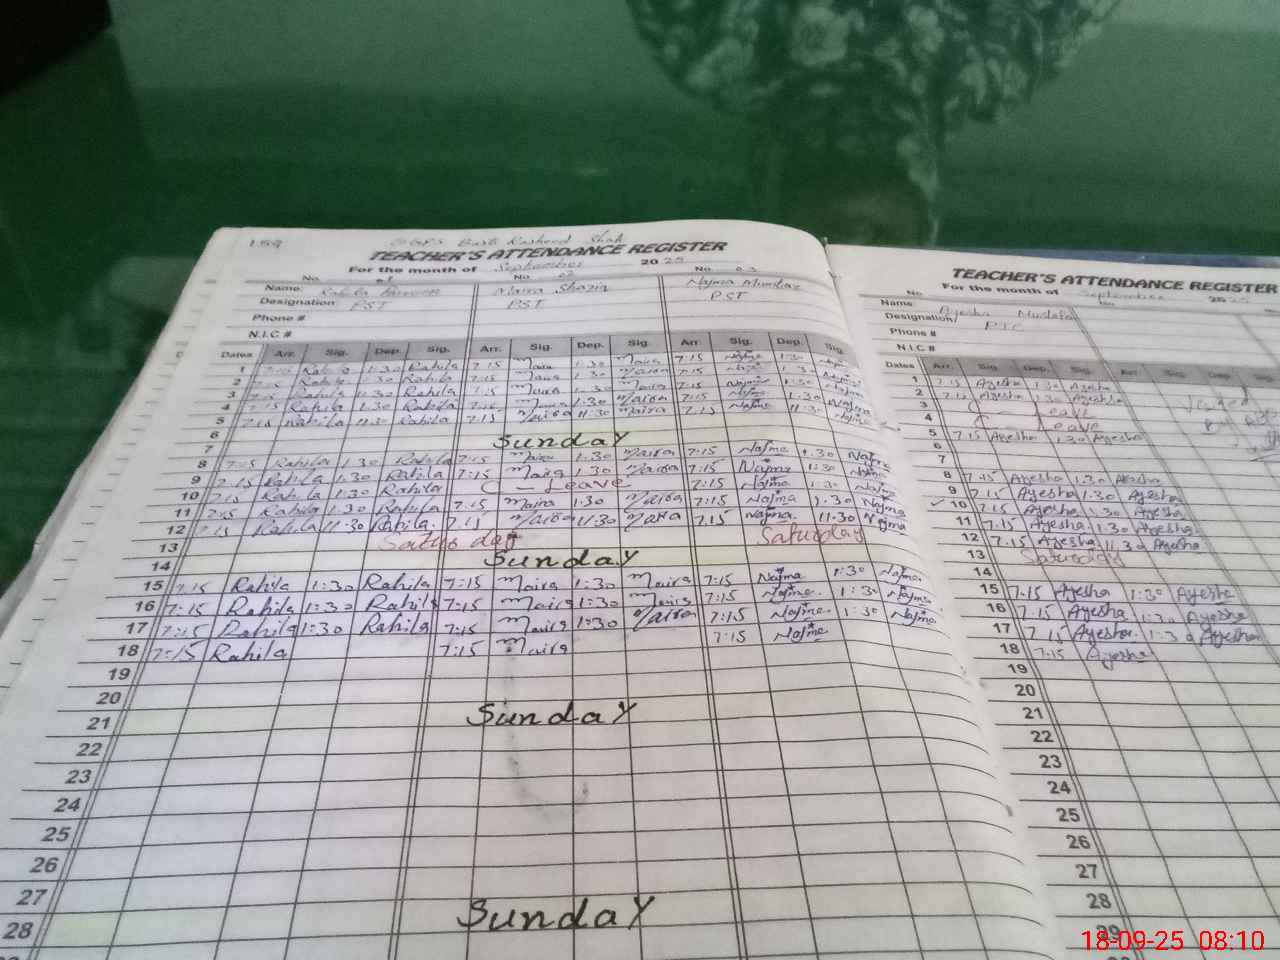 159 GGPS Basti Rasheed Shah
TEACHER'S ATTENDANCE REGISTER
For the month of September 2025
No. 01 No. 02 No. 03
Name: Rahila Parveen Maira Shazin Najma Mumtaz
Designation: PST PST PST
Phone #
N.I.C #
Dates Arr. Sig. Dep. Sig. Arr. Sig. Dep. Sig. Arr. Sig. Dep. Sig.
1 7:15 Rahila 1:30 Rahila 7:15 Maira 1:30 Maira 7:15 Najma 1:30 Najma
2 7:15 Rahila 1:30 Rahila 7:15 Maira 1:30 Maira 7:15 Najma 1:30 Najma
3 7:15 Rahila 1:30 Rahila 7:15 Maira 1:30 Maira 7:15 Najma 1:30 Najma
4 7:15 Rahila 1:30 Rahila 7:15 Maira 1:30 Maira 7:15 Najma 1:30 Najma
5 7:15 Rahila 11:30 Rahila 7:15 Maira 11:30 Maira 7:15 Najma 11:30 Najma
6
7 Sunday
8 7:15 Rahila 1:30 Rahila 7:15 Maira 1:30 Maira 7:15 Najma 1:30 Najma
9 7:15 Rahila 1:30 Rahila 7:15 Maira 1:30 Maira 7:15 Najma 1:30 Najma
10 7:15 Rahila 1:30 Rahila Leave 7:15 Najma 1:30 Najma
11 7:15 Rahila 1:30 Rahila 7:15 Maira 1:30 Maira 7:15 Najma 1:30 Najma
12 7:15 Rahila 11:30 Rahila 7:15 Maira 11:30 Maira 7:15 Najma 11:30 Najma
13 Saturday Saturday
14 Sunday
15 7:15 Rahila 1:30 Rahila 7:15 Maira 1:30 Maira 7:15 Najma 1:30 Najma
16 7:15 Rahila 1:30 Rahila 7:15 Maira 1:30 Maira 7:15 Najma 1:30 Najma
17 7:15 Rahila 1:30 Rahila 7:15 Maira 1:30 Maira 7:15 Najma 1:30 Najma
18 7:15 Rahila 7:15 Maira 7:15 Najma
19
20
21 Sunday
22
23
24
25
26
27
28 Sunday
TEACHER'S ATTENDANCE REGISTER
For the month of September 2025
No. No.
Name: Ayesha Mustafa
Designation/ PTC
Phone #
N.I.C #
Dates Arr. Sig. Dep. Sig. Arr. Sig. Dep.
1 7:15 Ayesha 1:30 Ayesha
2 7:15 Ayesha 1:30 Ayesha
3 Leave
4 Leave
5 7:15 Ayesha 11:30 Ayesha
6
7
8 7:45 Ayesha 1:30 Ayesha
9 7:15 Ayesha 1:30 Ayesha
10 7:15 Ayesha 1:30 Ayesha
11 7:15 Ayesha 1:30 Ayesha
12 7:15 Ayesha 11:30 Ayesha
13 Saturday
14
15 7:15 Ayesha 1:30 Ayesha
16 7:15 Ayesha 1:30 Ayesha
17 7:15 Ayesha 1:30 Ayesha
18 7:15 Ayesha
19
20
21
22
23
24
25
26
27
28
29
18-09-25 08:10